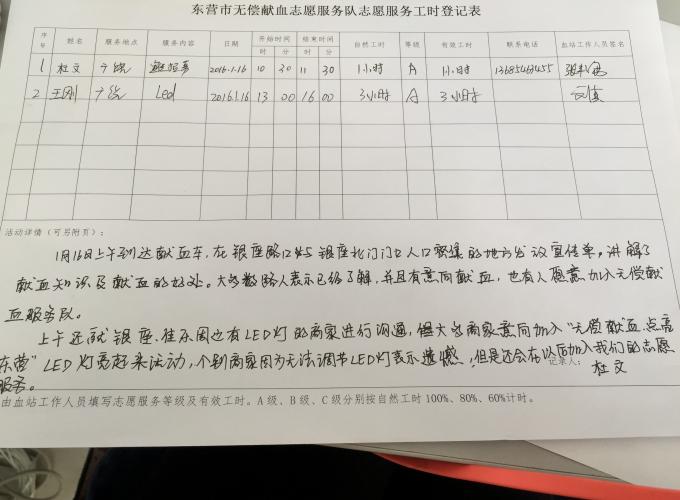 东营市无偿献血志愿服务队志愿服务工时登记表
序号 姓名 服务地点 服务内容 日期 开始时间 结束时间 自然工时 等级 有效工时 联系电话 血站工作人员签名
时 分 时 分
1 杜文 2016.1.16 10 30 11 30 1小时 A 1小时
2 王刚 Led 2016.1.16 13 00 16 00 3小时 A 3小时
活动详情（可另附页）：
1月16日上午到达献血车，在银座路口与银座北门门口人口密集的地方发放宣传单。讲解了
献血知识及献血的好处。大多数路人表示已经了解，并且有意向献血，也有人愿意加入无偿献
血服务队。
上午还就银座、佳乐周边有LED灯的商家进行沟通，大多商家意向加入"无偿献血、点亮
东营"LED灯亮起来活动，个别商家因为无法调节LED灯表示遗憾，但是还会在以后加入我们的志愿
服务。
记录人：杜文
由血站工作人员填写志愿服务等级及有效工时。A级、B级、C级分别按自然工时100%、80%、60%计时。